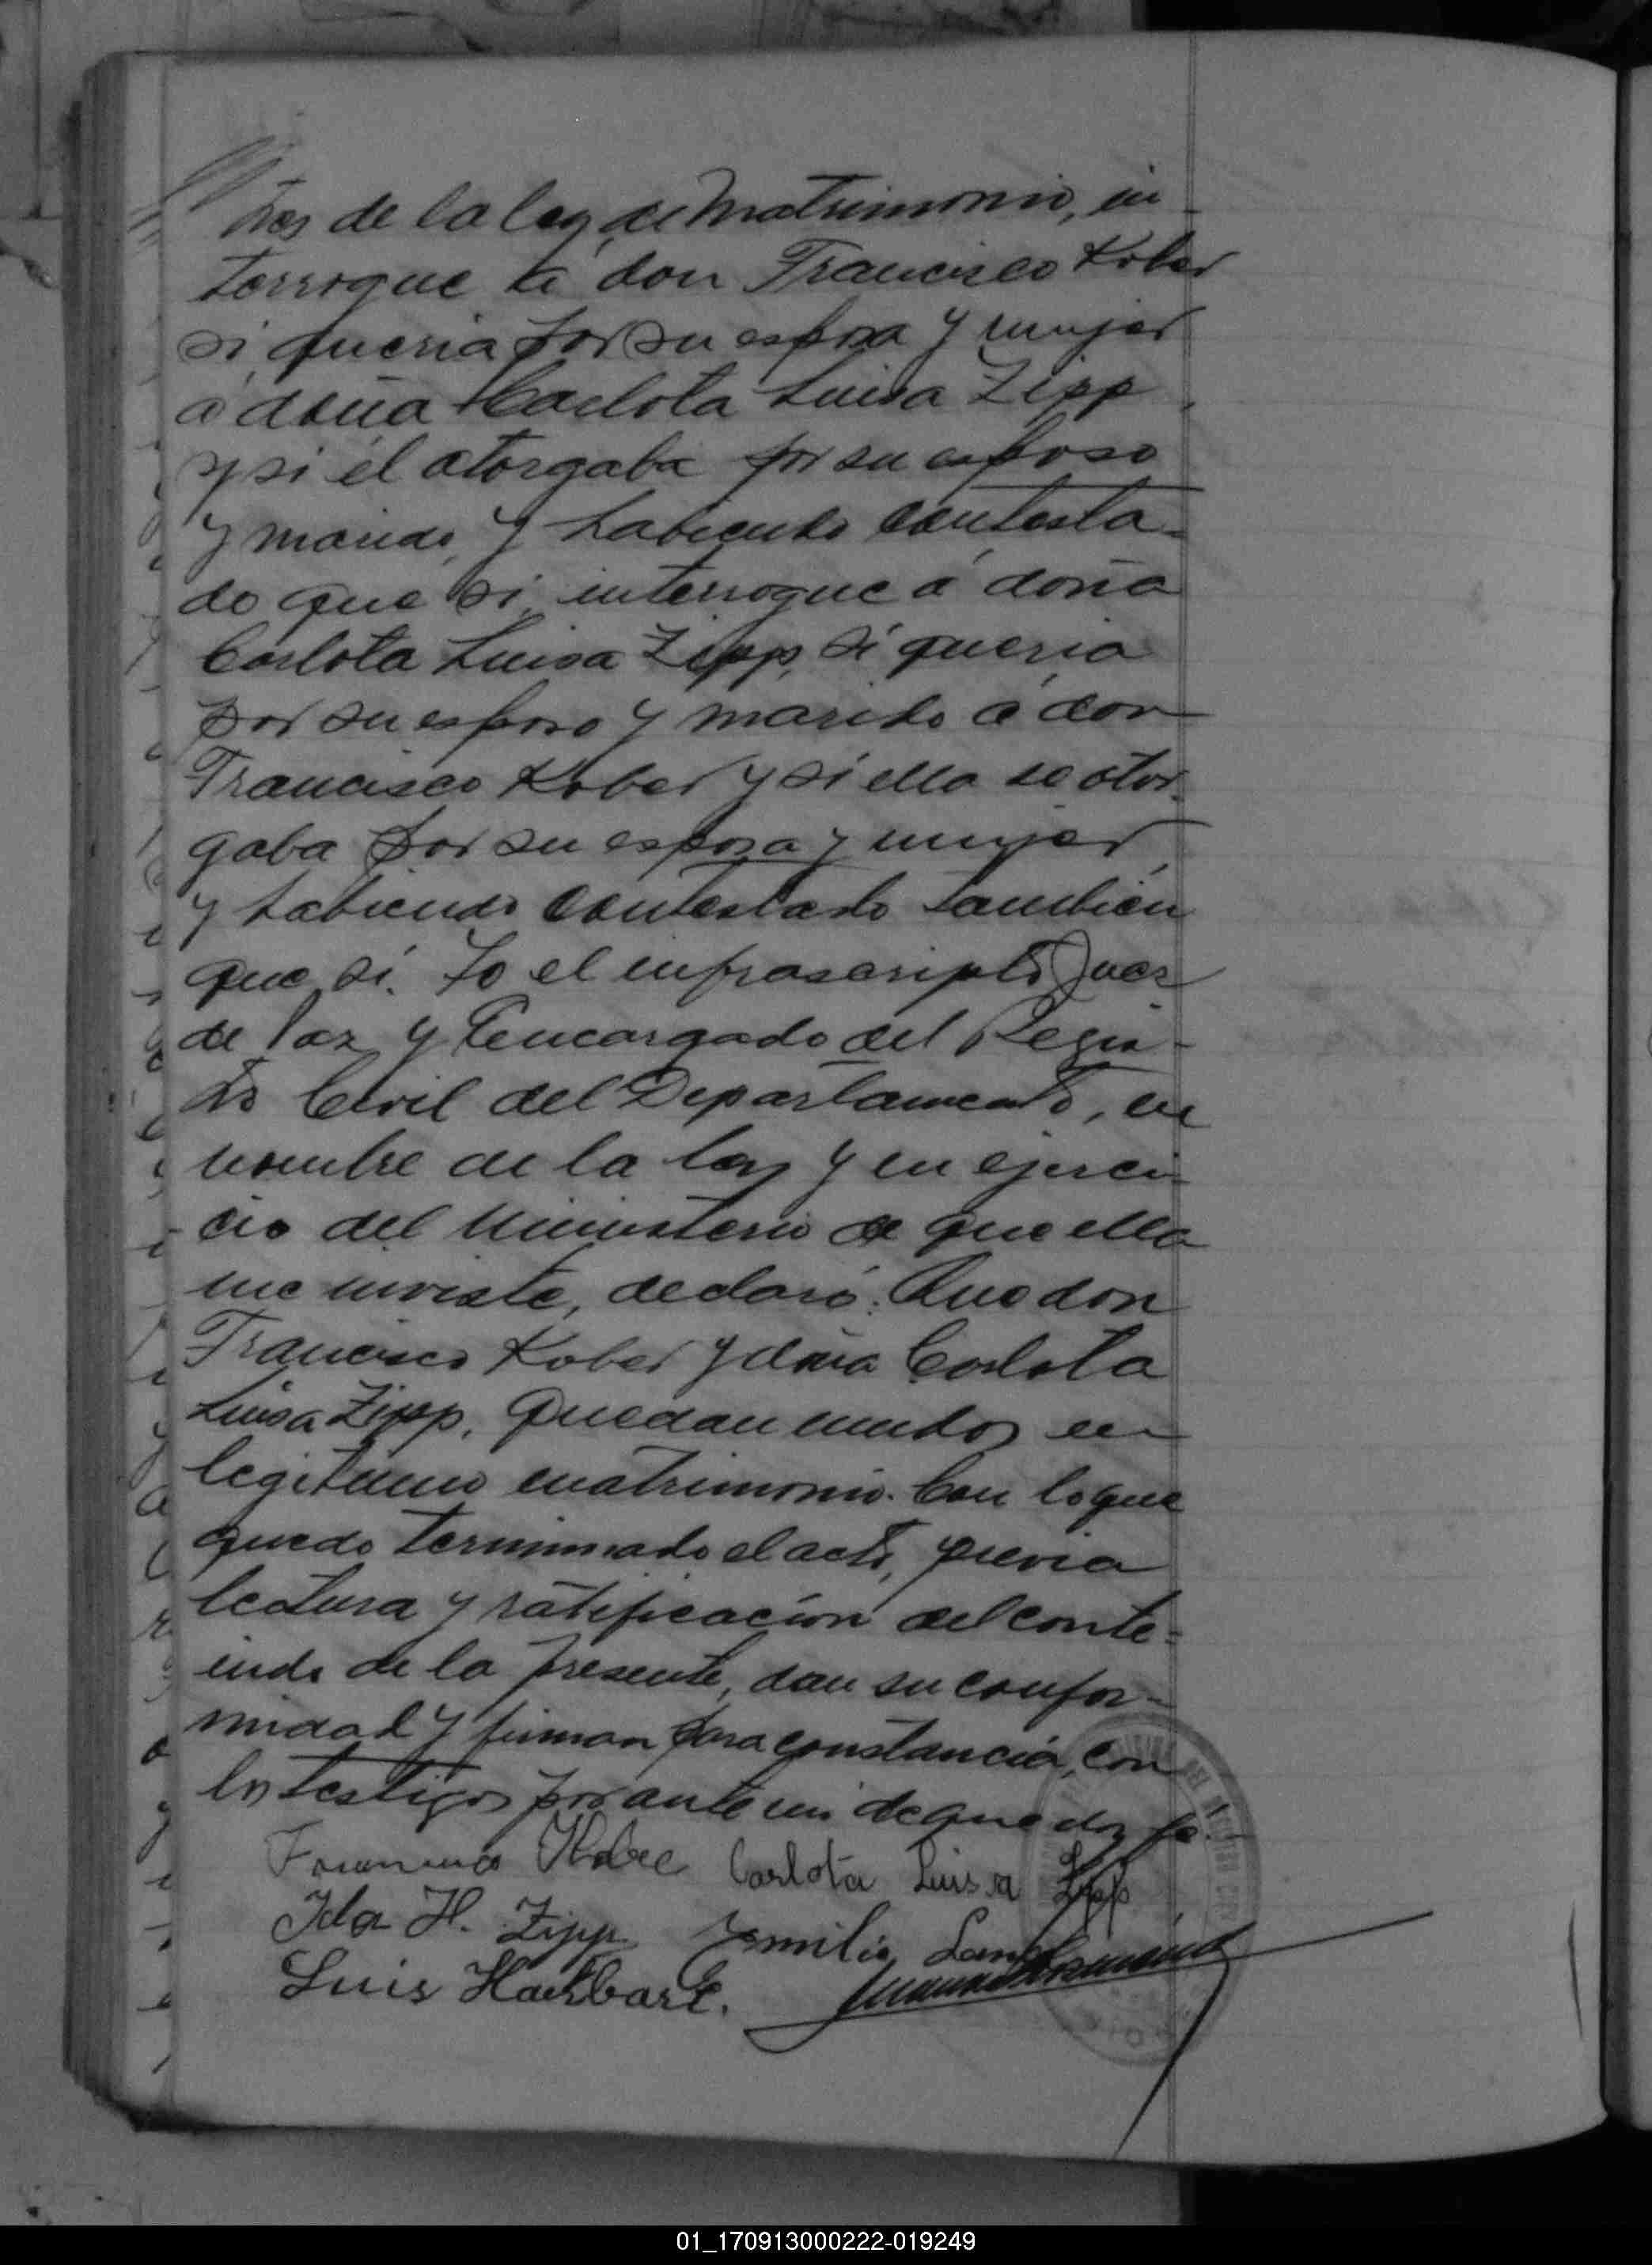 tres de la ley de Matrimonio, in-
terrogue á don Francisco Kober
si queria por su esposa y mujer
á doña Carlota Luisa Zipp,
y si él otorgaba por su esposo
y marido, y habiendo contesta-
do que si, interrogue á doña
Carlota Luisa Zipp, si queria
por su esposo y marido á don
Francisco Kober y si ella se otor-
gaba por su esposa y mujer,
y habiendo contestado tambien
que si. Yo el infrascripto Juez
de Paz y Encargado del Regis-
tro Civil del Departamento, en
nombre de la ley y en ejerci-
cio del Ministerio de que ella
me inviste, declaró: Que don
Francisco Kober y doña Carlota
Luisa Zipp, quedan unidos en
legitimo matrimonio. Con lo que
quedo terminado el acto, previa
lectura y ratificación del conte-
nido de la presente, dan su confor-
midad y firman para constancia, con
los testigos por ante mi de que doy fe.
Francisco Carlota Luisa Zipp
Ida H. Zipp Emilio
Luis
01_170913000222-019249